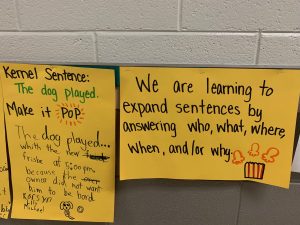 Kernel Sentence:
The dog played.
Make it POP
The dog played...
whith the new
frisbe at 5:00pm
because the
owner did not want
him to be bord
We are learning to
expand sentences by
answering who, what, where,
when, and/or why.